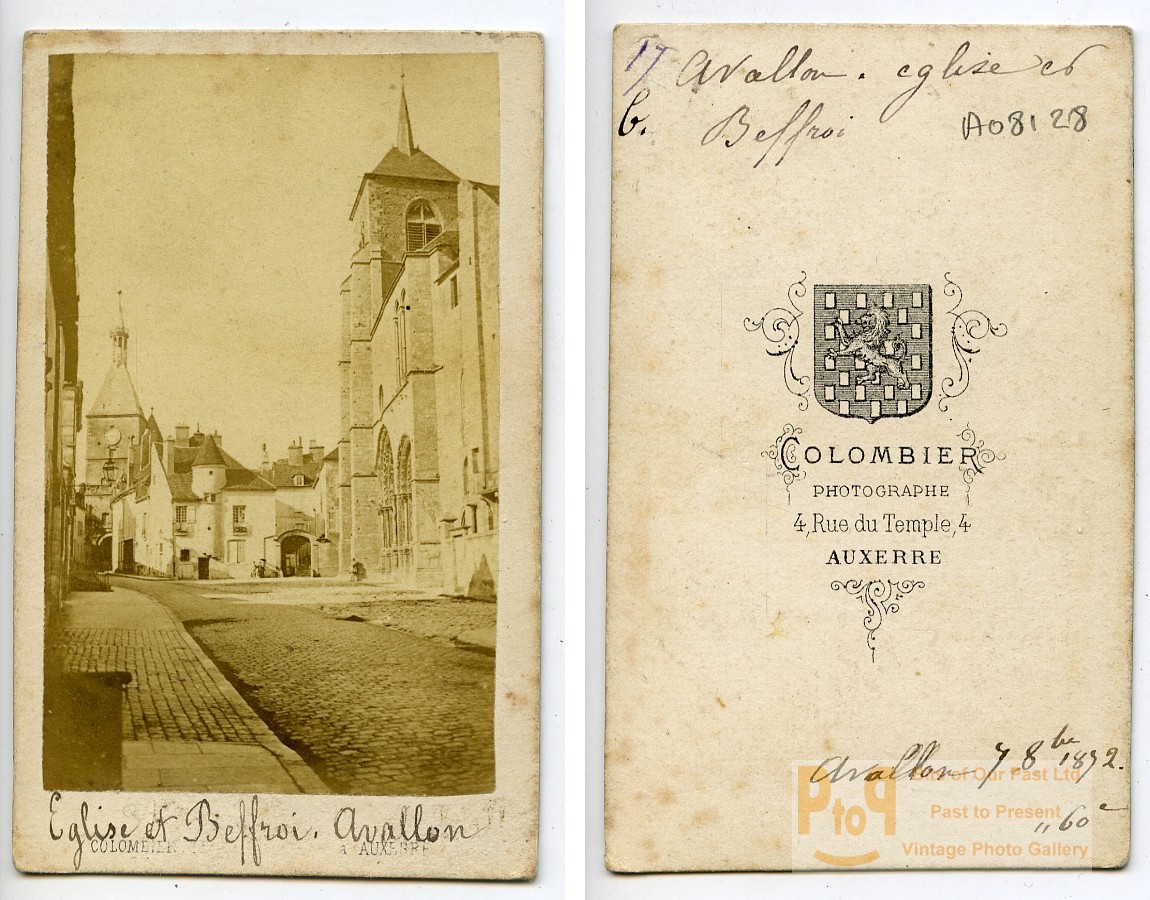 Eglise et Beffroi. Avallon
COLOMBIER
à AUXERRE
17 Avallon. eglise et
b. Beffroi
A08128
COLOMBIER
PHOTOGRAPHE
4, Rue du Temple, 4
AUXERRE
Avallon 7 8bre 1872.
End of Our Past Ltd
PtoP
Past to Present
"60c
Vintage Photo Gallery